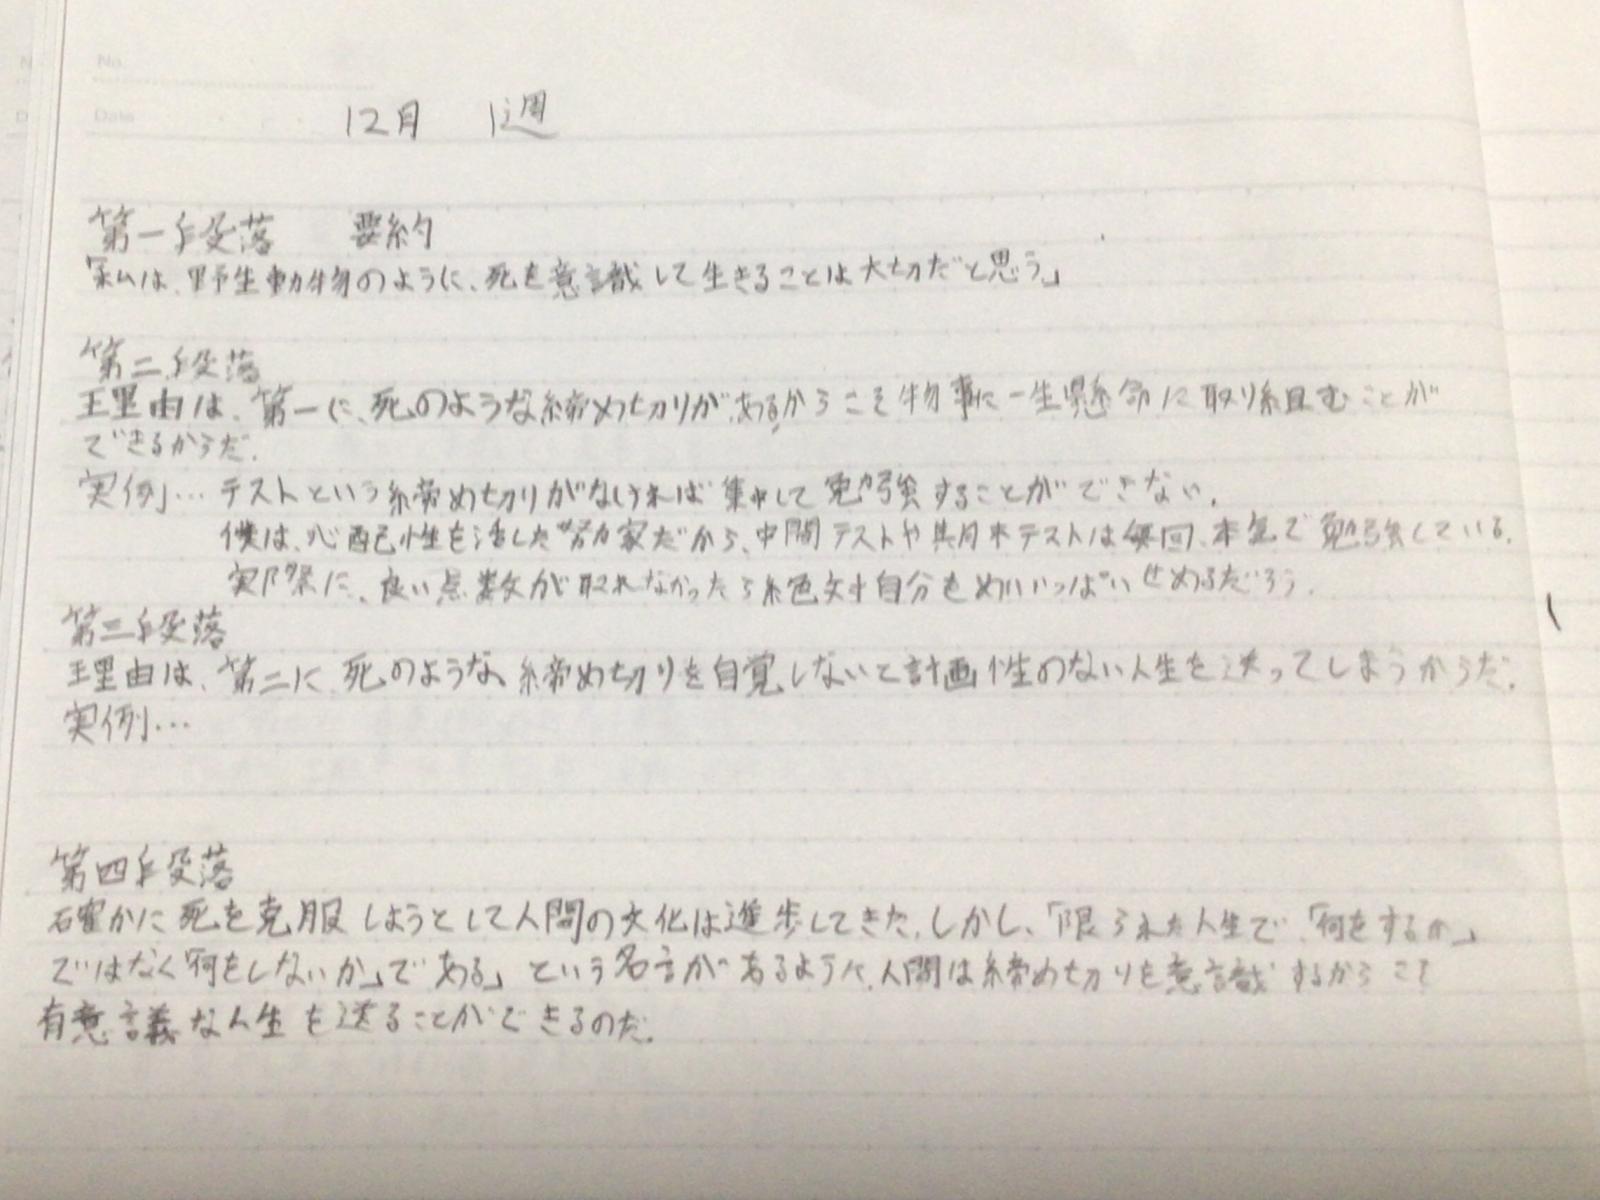 No.
Date
12月 1週
第一段落 要約
「私は、野生動物のように、死を意識して生きることは大切だと思う」
第二段落
理由は、第一に、死のような締め切りがあるからこそ物事に一生懸命に取り組むことが
できるからだ。
実例… テストという締め切りがなければ集中して勉強することができない。
僕は、心配性を活した努力家だから、中間テストや期末テストは毎回、本気で勉強している。
実際に、良い点数が取れなかったら絶対自分をめいいっぱいせめるだろう。
第三段落
理由は、第二に、死のような、締め切りを自覚しないと計画性のない人生を送ってしまうからだ。
実例…
第四段落
確かに死を克服しようとして人間の文化は進歩してきた。しかし、「限られた人生で、「何をするか」
ではなく「何をしないか」である」という名言があるように、人間は締め切りを意識するからこそ
有意義な人生を送ることができるのだ。